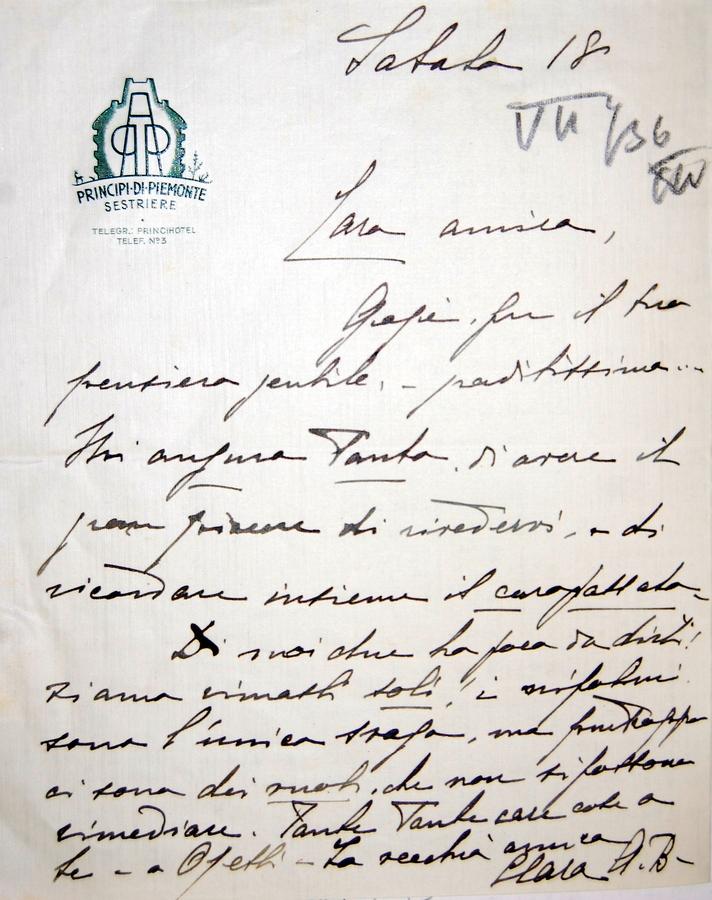 Sabato 18
VII 936
XIV
PRINCIPI·DI·PIEMONTE
SESTRIERE
TELEGR.: PRINCIHOTEL
TELEF. N°3
Cara amica,
Grazie, per il tuo
pensiero gentile, - graditissimo...
Mi auguro Tanto, di avere il
gran piacere di rivedervi, e di
ricordare insieme il caro passato -
Di noi due ho poco da dirti!
siamo rimasti soli! i nipotini
sono l'unico svago, ma purtroppo
ci sono dei vuoti, che non si possono
rimediare. Tante Tante care cose a
te - e Ojetti - La vecchia amica
Clara A. B-